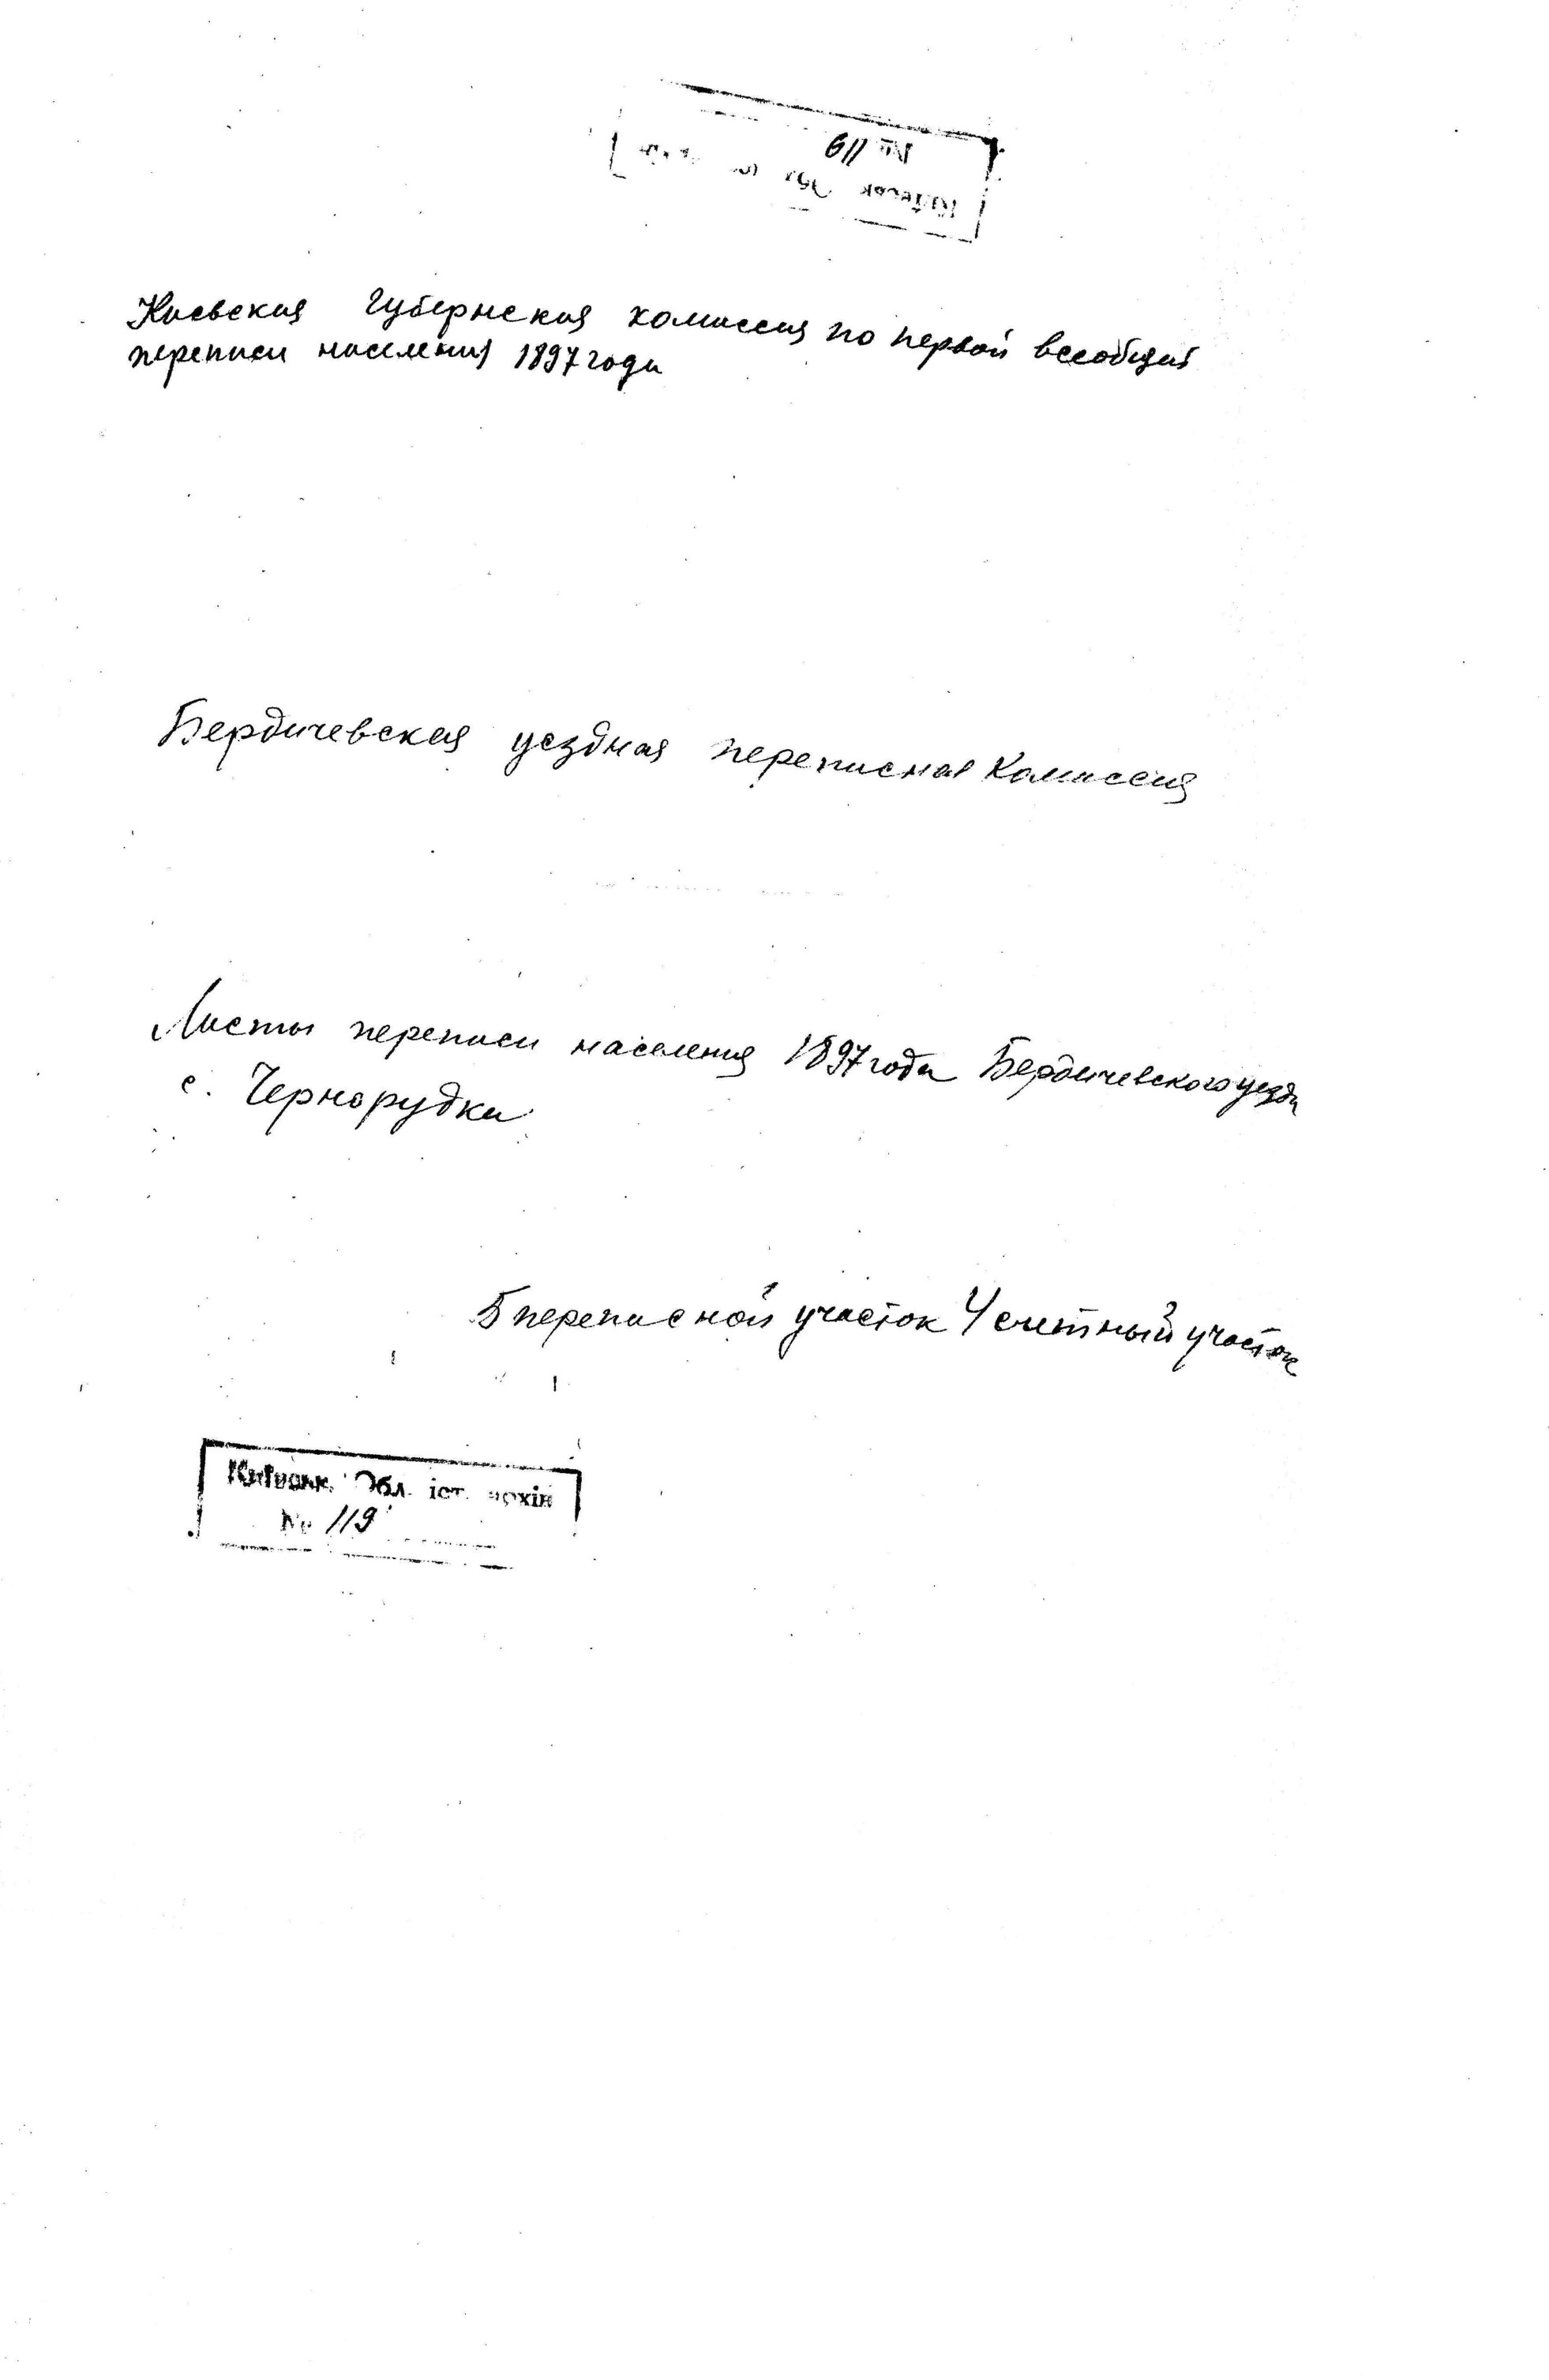 № 119
Київськ. Обл.
Киевская Губернская комиссия по первой всеобщей
переписи населения 1897 года
Бердичевская уездная переписная Комиссия
Листы переписи населения 1897 года Бердичевского уезда
с. Чернорудка
5 переписной участок 4 счетный участок
Київськ. Обл. іст. архів
№ 119